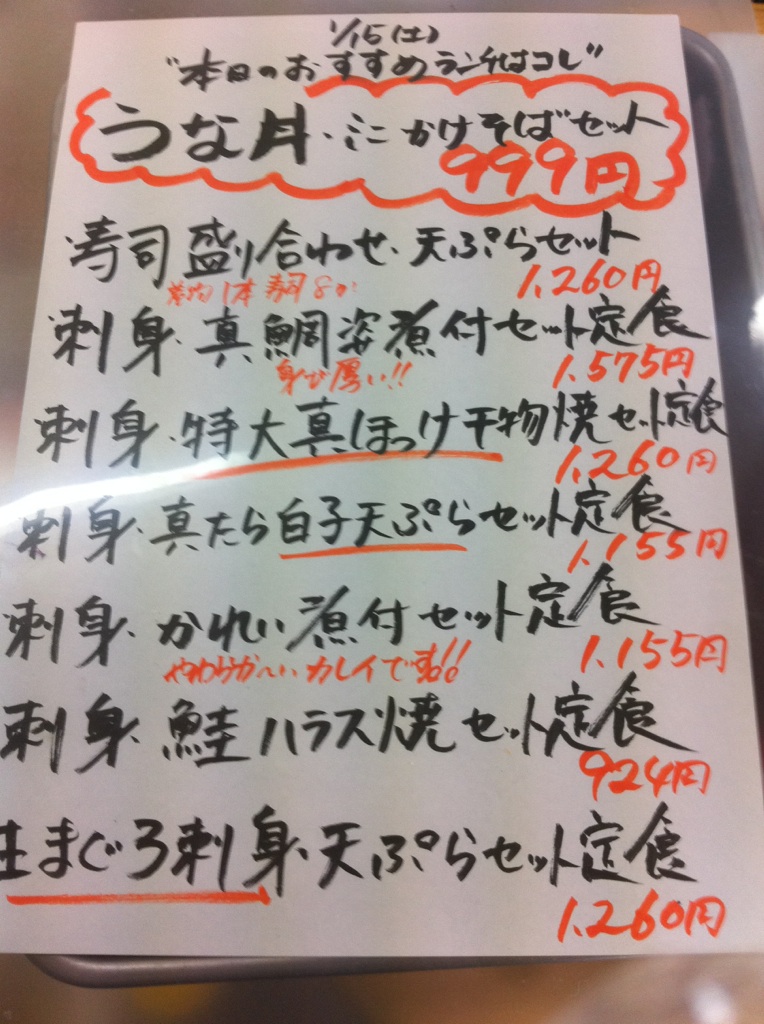 1/15(土)
"本日のおすすめランチはコレ"
うな丼・ミニかけそばセット
999円
寿司盛り合わせ・天ぷらセット
1,260円
巻物1本 寿司8カン
刺身・真鯛姿煮付セット定食
1,575円
身が厚い!!
刺身・特大真ほっけ干物焼セット定食
1,260円
刺身・真たら白子天ぷらセット定食
1,155円
刺身・かれい煮付セット定食
1,155円
やわらか〜いカレイです!!
刺身・鮭ハラス焼セット定食
924円
生まぐろ刺身・天ぷらセット定食
1,260円